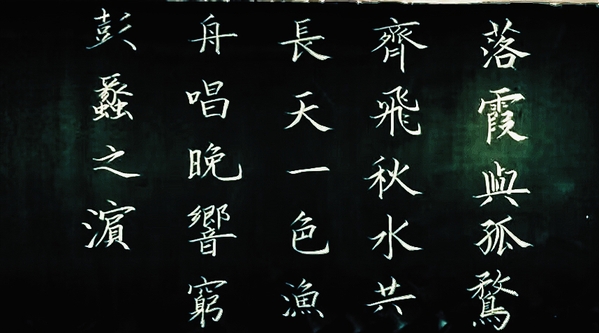 落霞與孤鶩
齊飛秋水共
長天一色漁
舟唱晚響窮
彭蠡之濱